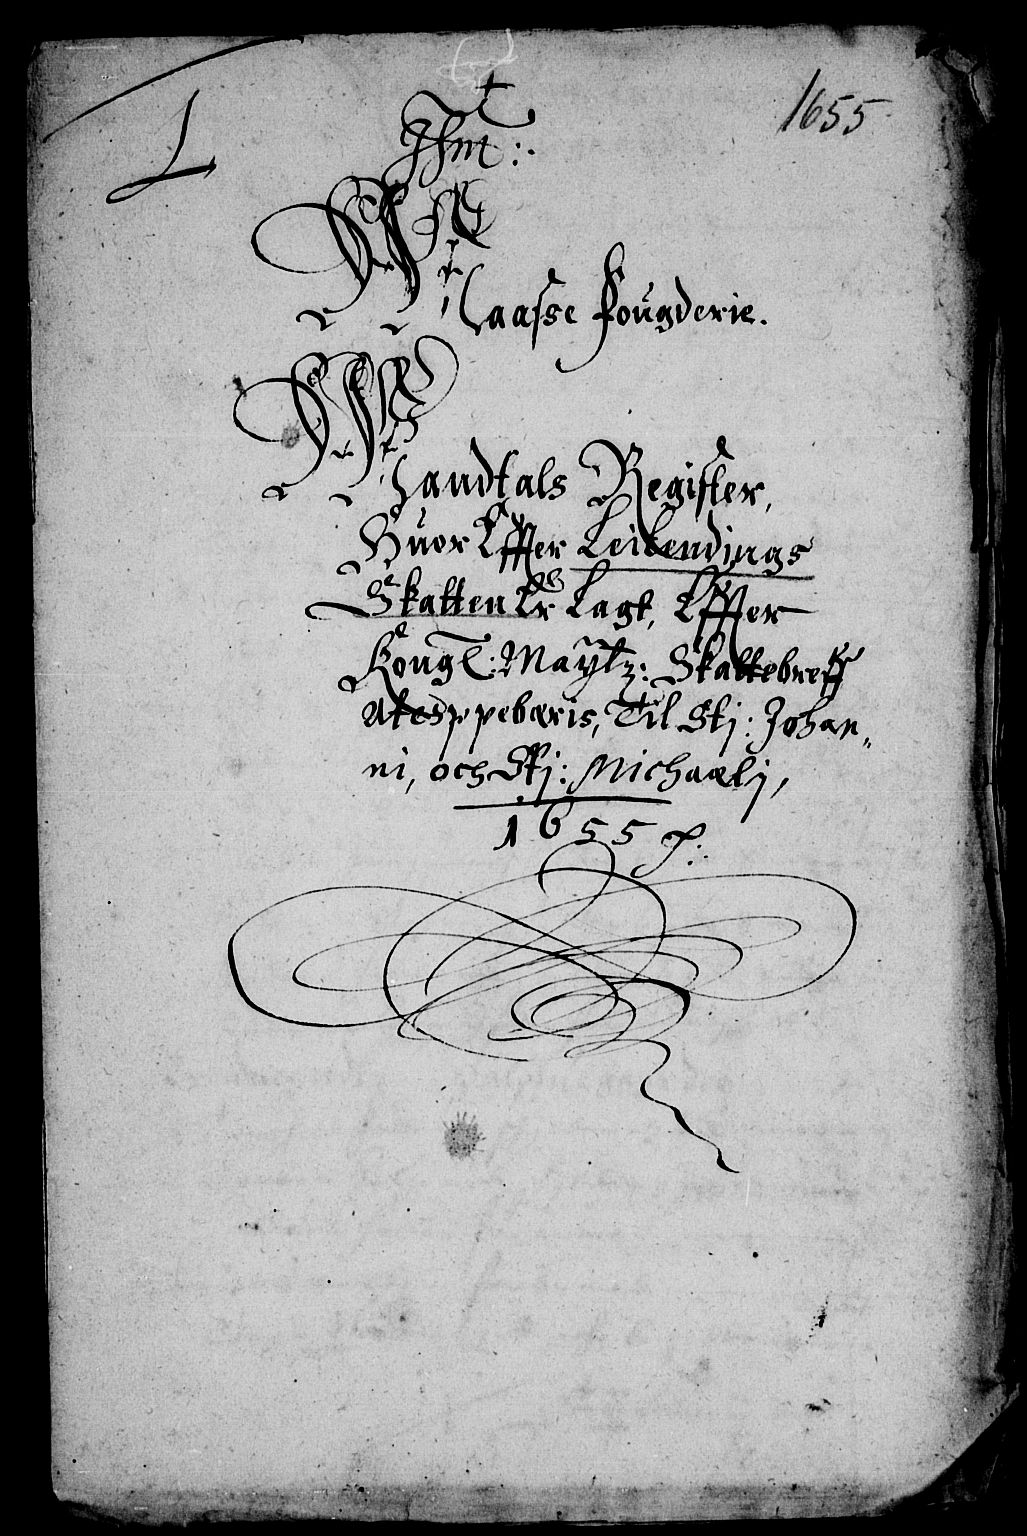 1655
L
Jhm:
Naasse Fougderie.
Mandtals Register,
Huor Effter Leilendings
Skatten Er Lagt, Effter
Kongl: Maytz: Skattebreff
Til Stj: Johan„
ni, och Stj: Michaelj,
1655 p: